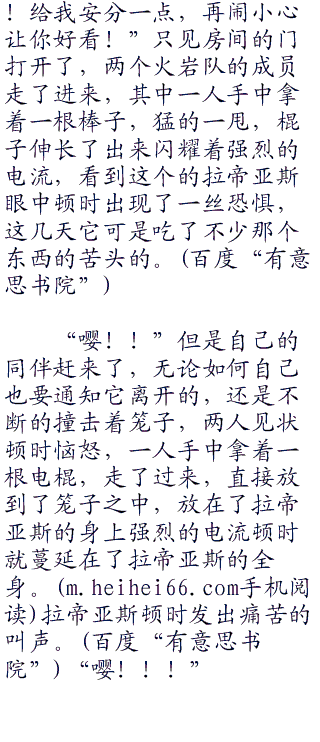 ！给我安分一点，再闹小心
让你好看！”只见房间的门
打开了，两个火岩队的成员
走了进来，其中一人手中拿
着一根棒子，猛的一甩，棍
子伸长了出来闪耀着强烈的
电流，看到这个的拉帝亚斯
眼中顿时出现了一丝恐惧，
这几天它可是吃了不少那个
东西的苦头的。(百度“有意
思书院”)
“嘤！！”但是自己的
同伴赶来了，无论如何自己
也要通知它离开的，还是不
断的撞击着笼子，两人见状
顿时恼怒，一人手中拿着一
根电棍，走了过来，直接放
到了笼子之中，放在了拉帝
亚斯的身上强烈的电流顿时
就蔓延在了拉帝亚斯的全
身。(m.heihei66.com手机阅
读)拉帝亚斯顿时发出痛苦的
叫声。(百度“有意思书
院”)“嘤！！！”